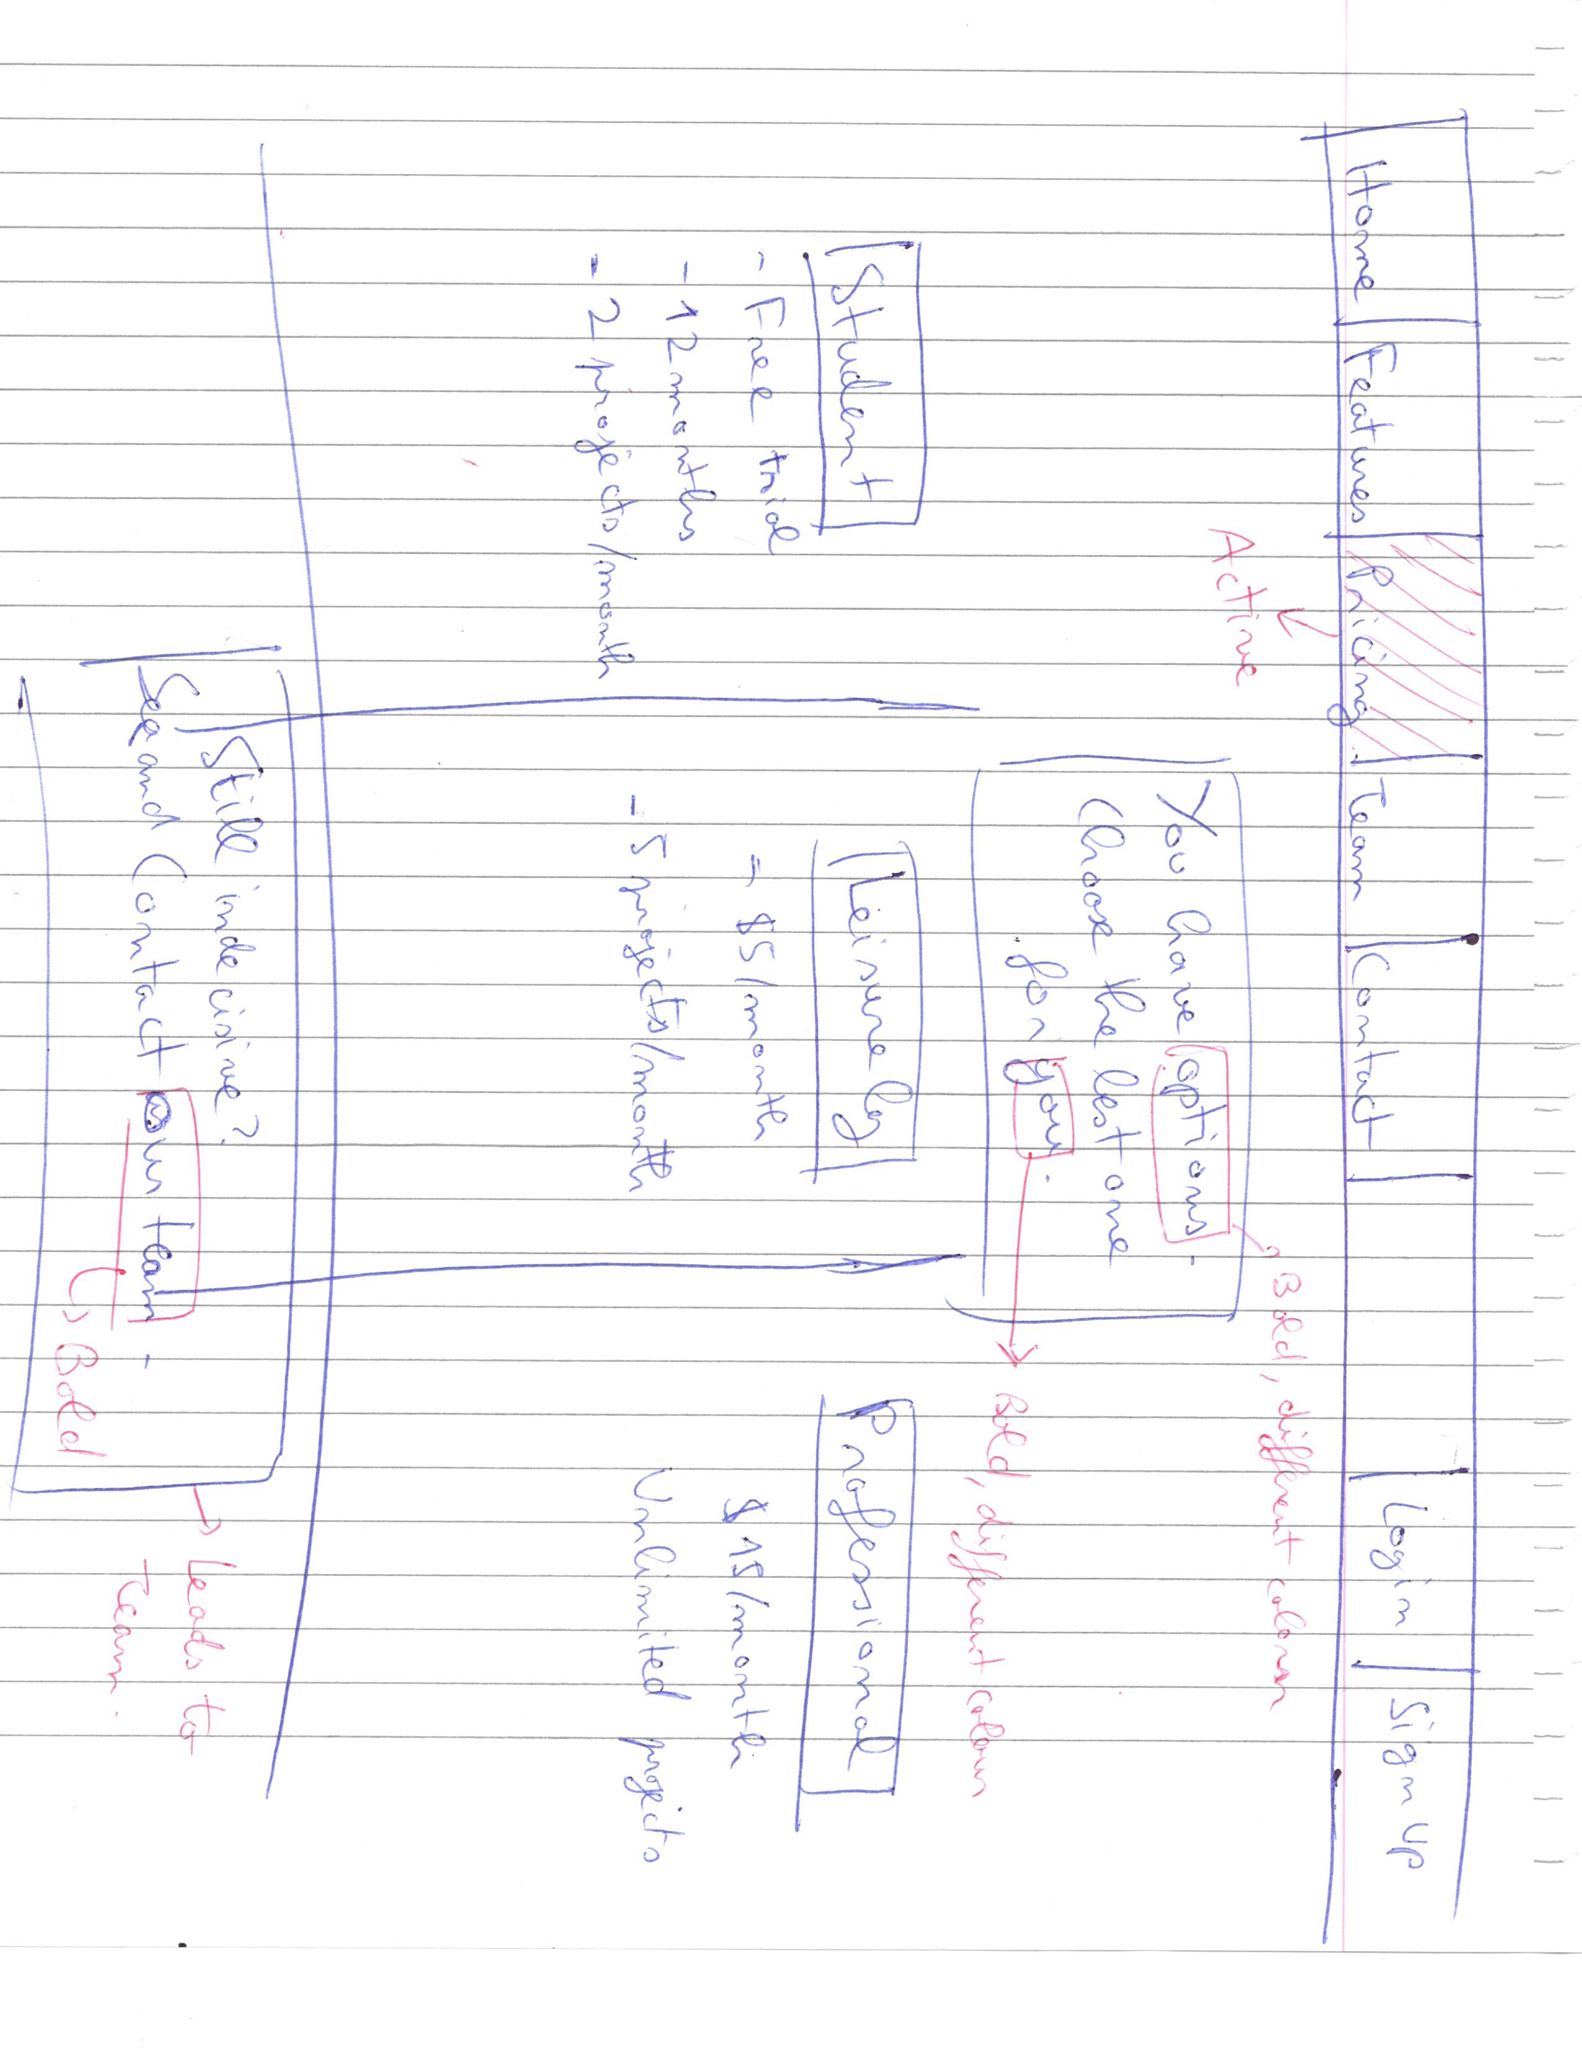 Home Features Pricing Team Contact Login Sign Up
Active
Bold, different colour
You have options.
Choose the best one
for you.
Bold, different colour
Student
- Free trial
- 12 months
- 2 projects/month
Leisurely
- $5/month
- 5 projects/month
Professional
$15/month
Unlimited projects
Still indecisive?
See and Contact our team.
Bold
Leads to
Team.